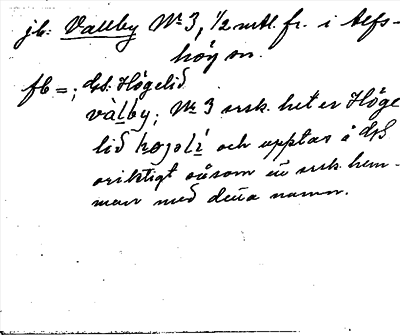 jb: Vallby No 3, 1/2 mtl. fr. i Alfs-
hög sn.
fb =; Gd. Högelid
vàlby; No 3 ursk. heter Höge
lid høgəlì och upptas å GS
oriktigt såsom en ursk. hem-
man med detta namn.